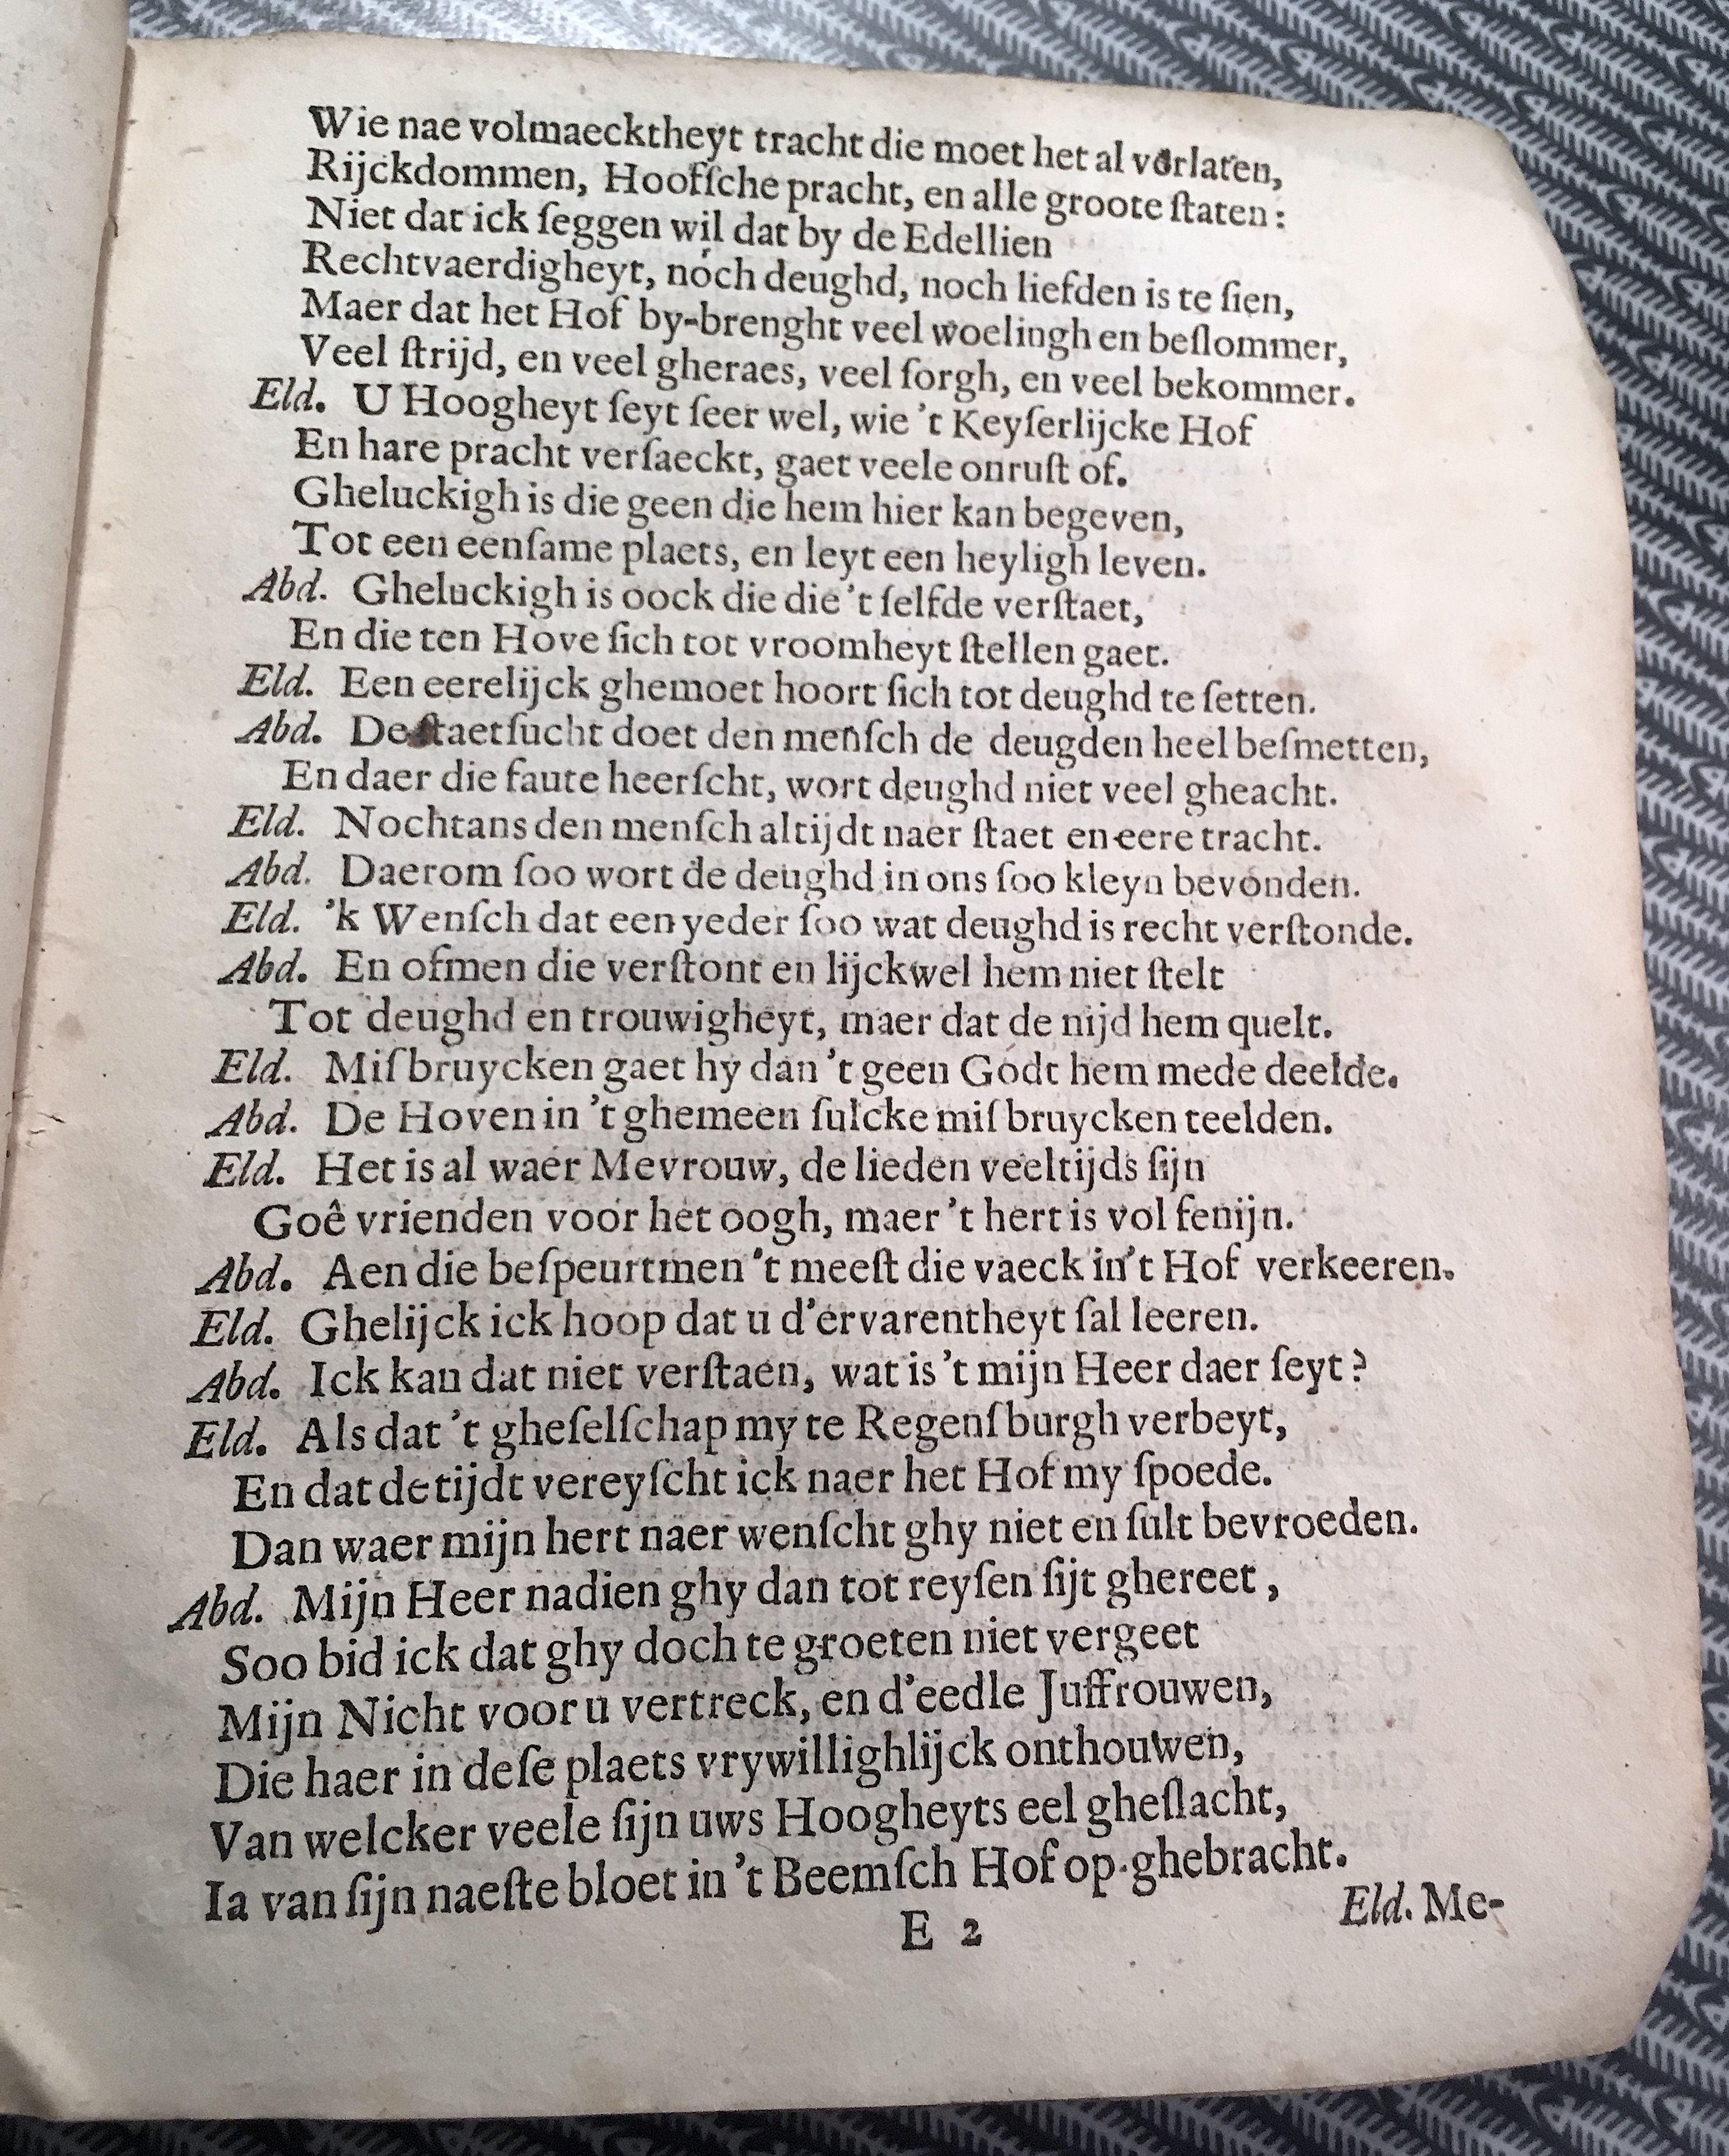 Wie nae volmaecktheyt tracht die moet het al vorlaten,
Rijckdommen, Hoofſche pracht, en alle groote ſtaten:
Niet dat ick ſeggen wil dat by de Edellien
Rechtvaerdigheyt, noch deughd, noch liefden is te ſien,
Maer dat het Hof by-brenght veel woelingh en beſlommer,
Veel ſtrijd, en veel gheraes, veel ſorgh, en veel bekommer.
Eld. U Hoogheyt ſeyt ſeer wel, wie 't Keyſerlijcke Hof
En hare pracht verſaeckt, gaet veele onruſt of.
Gheluckigh is die geen die hem hier kan begeven,
Tot een eenſame plaets, en leyt een heyligh leven.
Abd. Gheluckigh is oock die die 't ſelfde verſtaet,
En die ten Hove ſich tot vroomheyt ſtellen gaet.
Eld. Een eerelijck ghemoet hoort ſich tot deughd te ſetten.
Abd. De ſtaetſucht doet den menſch de deugden heel beſmetten,
En daer die faute heerſcht, wort deughd niet veel gheacht.
Eld. Nochtans den menſch altijdt naer ſtaet en eere tracht.
Abd. Daerom ſoo wort de deughd in ons ſoo kleyn bevonden.
Eld. 'k Wenſch dat een yeder ſoo wat deughd is recht verſtonde.
Abd. En ofmen die verſtont en lijckwel hem niet ſtelt
Tot deughd en trouwigheyt, maer dat de nijd hem quelt.
Eld. Miſbruycken gaet hy dan 't geen Godt hem mede deelde.
Abd. De Hoven in 't ghemeen ſulcke miſbruycken teelden.
Eld. Het is al waer Mevrouw, de lieden veeltijds ſijn
Goê vrienden voor het oogh, maer 't hert is vol fenijn.
Abd. Aen die beſpeurtmen 't meeſt die vaeck in 't Hof verkeeren.
Eld. Ghelijck ick hoop dat u d'ervarentheyt ſal leeren.
Abd. Ick kan dat niet verſtaen, wat is 't mijn Heer daer ſeyt?
Eld. Als dat 't gheſelſchap my te Regenſburgh verbeyt,
En dat de tijdt vereyſcht ick naer het Hof my ſpoede.
Dan waer mijn hert naer wenſcht ghy niet en ſult bevroeden.
Abd. Mijn Heer nadien ghy dan tot reyſen ſijt ghereet,
Soo bid ick dat ghy doch te groeten niet vergeet
Mijn Nicht voor u vertreck, en d'eedle Juffrouwen,
Die haer in deſe plaets vrywillighlijck onthouwen,
Van welcker veele ſijn uws Hoogheyts eel gheſlacht,
Ia van ſijn naeſte bloet in 't Beemſch Hof op-ghebracht.
E 2
Eld. Me-